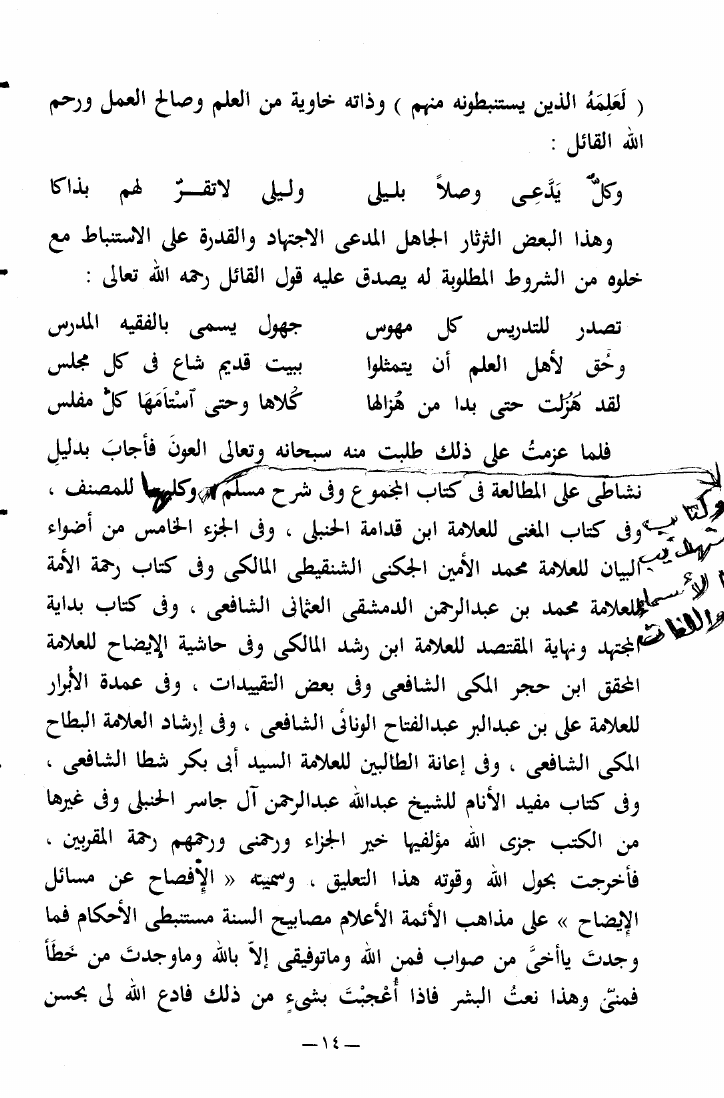 ( لَعَلِمَهُ الذين يستنبطونه منهم ) وذاته خاوية من العلم وصالح العمل ورحم
الله القائل :
وكلٌّ يَدَّعِى وصلاً بليلى وليلى لاتقــرّ لهم بذاكا
وهذا البعض الثرثار الجاهل المدعى الاجتهاد والقدرة على الاستنباط مع
خلوه من الشروط المطلوبة له يصدق عليه قول القائل رحمه الله تعالى :
تصدر للتدريس كل مهوس جهول يسمى بالفقيه المدرس
وحُق لأهل العلم أن يتمثلوا ببيت قديم شاع فى كل مجلس
لقد هَزُلَت حتى بدا من هُزالها كُلاها وحتى آسْتامَهَا كلُّ مفلس
فلما عزمتُ على ذلك طلبت منه سبحانه وتعالى العونَ فأجابَ بدليلِ
نشاطى على المطالعة فى كتاب المجموع وفى شرح مسلم وكلها للمصنف ،
وكتاب
تهذيب
الأسماء
واللغات
وفى كتاب المغنى للعلامة ابن قدامة الحنبلى ، وفى الجزء الخامس من أضواء
البيان للعلامة محمد الأمين الجكنى الشنقيطى المالكى وفى كتاب رحمة الأمة
للعلامة محمد بن عبدالرحمن الدمشقى العثمانى الشافعى ، وفى كتاب بداية
المجتهد ونهاية المقتصد للعلامة ابن رشد المالكى وفى حاشية الإيضاح للعلامة
المحقق ابن حجر المكى الشافعى وفى بعض التقييدات ، وفى عمدة الأبرار
للعلامة على بن عبدالبر عبدالفتاح الونائى الشافعى ، وفى إرشاد العلامة البطاح
المكى الشافعى ، وفى إعانة الطالبين للعلامة السيد أبى بكر شطا الشافعى ،
وفى كتاب مفيد الأنام للشيخ عبدالله عبدالرحمن آل جاسر الحنبلى وفى غيرها
من الكتب جزى الله مؤلفيها خير الجزاء ورحمنى ورحمهم رحمة المقربين ،
فأخرجت بحول الله وقوته هذا التعليق ، وسميته « الإفصاح عن مسائل
الإيضاح » على مذاهب الأئمة الأعلام مصابيح السنة مستنبطى الأحكام فما
وجدتَ ياأخىَّ من صواب فمن الله وماتوفيقى إلاّ بالله وماوجدتَ من خَطَأَ
فمنىّ وهذا نعتُ البشر فاذا أُعْجبْتَ بشىءٍ من ذلك فادع الله لى بحسن
— ١٤ —